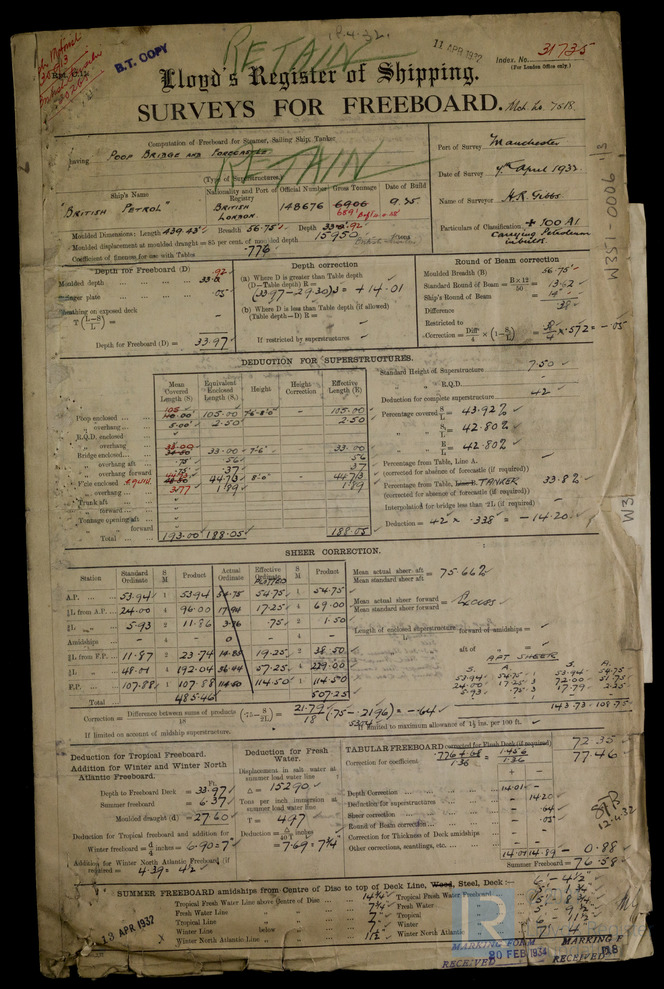 18.4.32.
RETAIN
B.T. COPY
11 APR 1932
Index No. 31735
(For London Office only.)
Lloyd's Register of Shipping.
SURVEYS FOR FREEBOARD.
Computation of Freeboard for Steamer, Sailing Ship, Tanker
having POOP BRIDGE AND FORECASTLE
RETAIN
(Type of Superstructures.)
Port of Survey Manchester
Date of Survey 4th April 1932
Name of Surveyor H.R. Gibbs
Particulars of Classification + 100 A1
Carrying Petroleum
in bulk
Ship's Name
Nationality and Port of Registry
Official Number
Gross Tonnage
Date of Build
"BRITISH PETROL"
BRITISH
LONDON.
148676
6906
9.25
Moulded Dimensions: Length 439.45' Breadth 56.75' Depth
Moulded displacement at moulded draught = 85 per cent. of moulded depth 15950 tons
Coefficient of fineness for use with Tables .776
Depth for Freeboard (D)
Moulded depth
.92
Stringer plate .05
Sheathing on exposed deck
T (L-S / L) =
Depth for Freeboard (D) = 33.97
Depth correction
(a) Where D is greater than Table depth
(D-Table depth) R =
(33.97-29.30)3 = +14.01
(b) Where D is less than Table depth (if allowed)
(Table depth-D) R =
If restricted by superstructures
Round of Beam correction
Moulded Breadth (B) 56.75'
Standard Round of Beam = B×12 / 50 = 13.62
Ship's Round of Beam = 14"
Difference .38
Restricted to
Correction = Diff / 4 × (1- S/L) = .38 / 4 × .572 = -.05
DEDUCTION FOR SUPERSTRUCTURES.
Mean Covered Length (S)
Equivalent Enclosed Length (S₁)
Height
Height Correction
Effective Length (E)
Poop enclosed 105.00 7'6"-8'0" - 105.00
" overhang 5.00 2.50 2.50
R.Q.D. enclosed
" overhang
Bridge enclosed 33.00 33.00 7'6" - 33.00
" overhang aft .75 .56 .56
" overhang forward .75 .37 .37
F'cle enclosed 44.73 8'0" - 44.73
" overhang 3.77 1.89 1.89
Trunk aft
" forward
Tonnage opening aft
" forward
Total 193.00 188.05 188.05
Standard Height of Superstructure 7.50
" " R.Q.D.
Deduction for complete superstructure 42
Percentage covered S/L = 43.92%
" " S₁/L = 42.80%
" " E/L = 42.80%
Percentage from Table, Line A.
(corrected for absence of forecastle (if required))
Percentage from Table, TANKER 33.8%
(corrected for absence of forecastle (if required))
Interpolation for bridge less than .2L (if required)
Deduction = 42 × .338 = -14.20
SHEER CORRECTION.
Station
Standard Ordinate
S M
Product
Actual Ordinate
Effective Ordinate
S M
Product
A.P. 53.94 1 53.94 54.75 54.75 1 54.75
⅙L from A.P. 24.00 4 96.00 17.25 4 69.00
⅓L " 5.93 2 11.86 .75 2 1.50
Amidships - 4 - 0 - 4 -
⅓L from F.P. 11.87 2 23.74 19.25 2 38.50
⅙L " 48.01 4 192.04 57.25 4 229.00
F.P. 107.88 1 107.88 114.50 114.50 1 114.50
Total 485.46 507.25
Mean actual sheer aft / Mean standard sheer aft = 75.66%
Mean actual sheer forward / Mean standard sheer forward = Excess
Length of enclosed superstructure forward of amidships =
aft of " =
AFT SHEER
143.73 108.75
Correction = Difference between sums of products / 18 (.75 - S/2L) = 21.79 / 18 (.75 - .2196) = -.64
If limited on account of midship superstructure.
If limited to maximum allowance of 1½ ins. per 100 ft.
Deduction for Tropical Freeboard.
Addition for Winter and Winter North Atlantic Freeboard.
Depth to Freeboard Deck = 33.97
Summer freeboard = 6.37
Moulded draught (d) = 27.60
Deduction for Tropical freeboard and addition for
Winter freeboard = d/4 inches = 6.90 = 7"
Addition for Winter North Atlantic Freeboard (if
required) = 4.39 = 4½
Deduction for Fresh Water.
Displacement in salt water at
summer load water line
Δ = 15290
Tons per inch immersion at
summer load water line
T = 49.7
Deduction = Δ / 40 T inches
= 7.69 = 7¾"
TABULAR FREEBOARD corrected for Flush Deck (if required) 72.35
Correction for coefficient .776+.68 / 1.36 = 1.456 / 1.36 77.46
+ -
Depth Correction 14.01
Deduction for superstructures - 14.20
Sheer correction - .64
Round of Beam correction - .05
Correction for Thickness of Deck amidships
Other corrections, scantlings, etc.
14.01 14.89 - 0.88
Summer Freeboard = 76.58
12.4.32
SUMMER FREEBOARD amidships from Centre of Disc to top of Deck Line, Wood, Steel, Deck:-
Tropical Fresh Water Line above Centre of Disc 14¾"
Fresh Water Line " " 7¾"
Tropical Line " " 7"
Winter Line below " 7"
Winter North Atlantic Line " " 11½"
Tropical Fresh Water Freeboard
Fresh Water "
Tropical "
Winter "
Winter North Atlantic "
13 APR 1932
R
MARKING FORM
20 FEB 1934
RECEIVED
MARKING F
RECEIVED